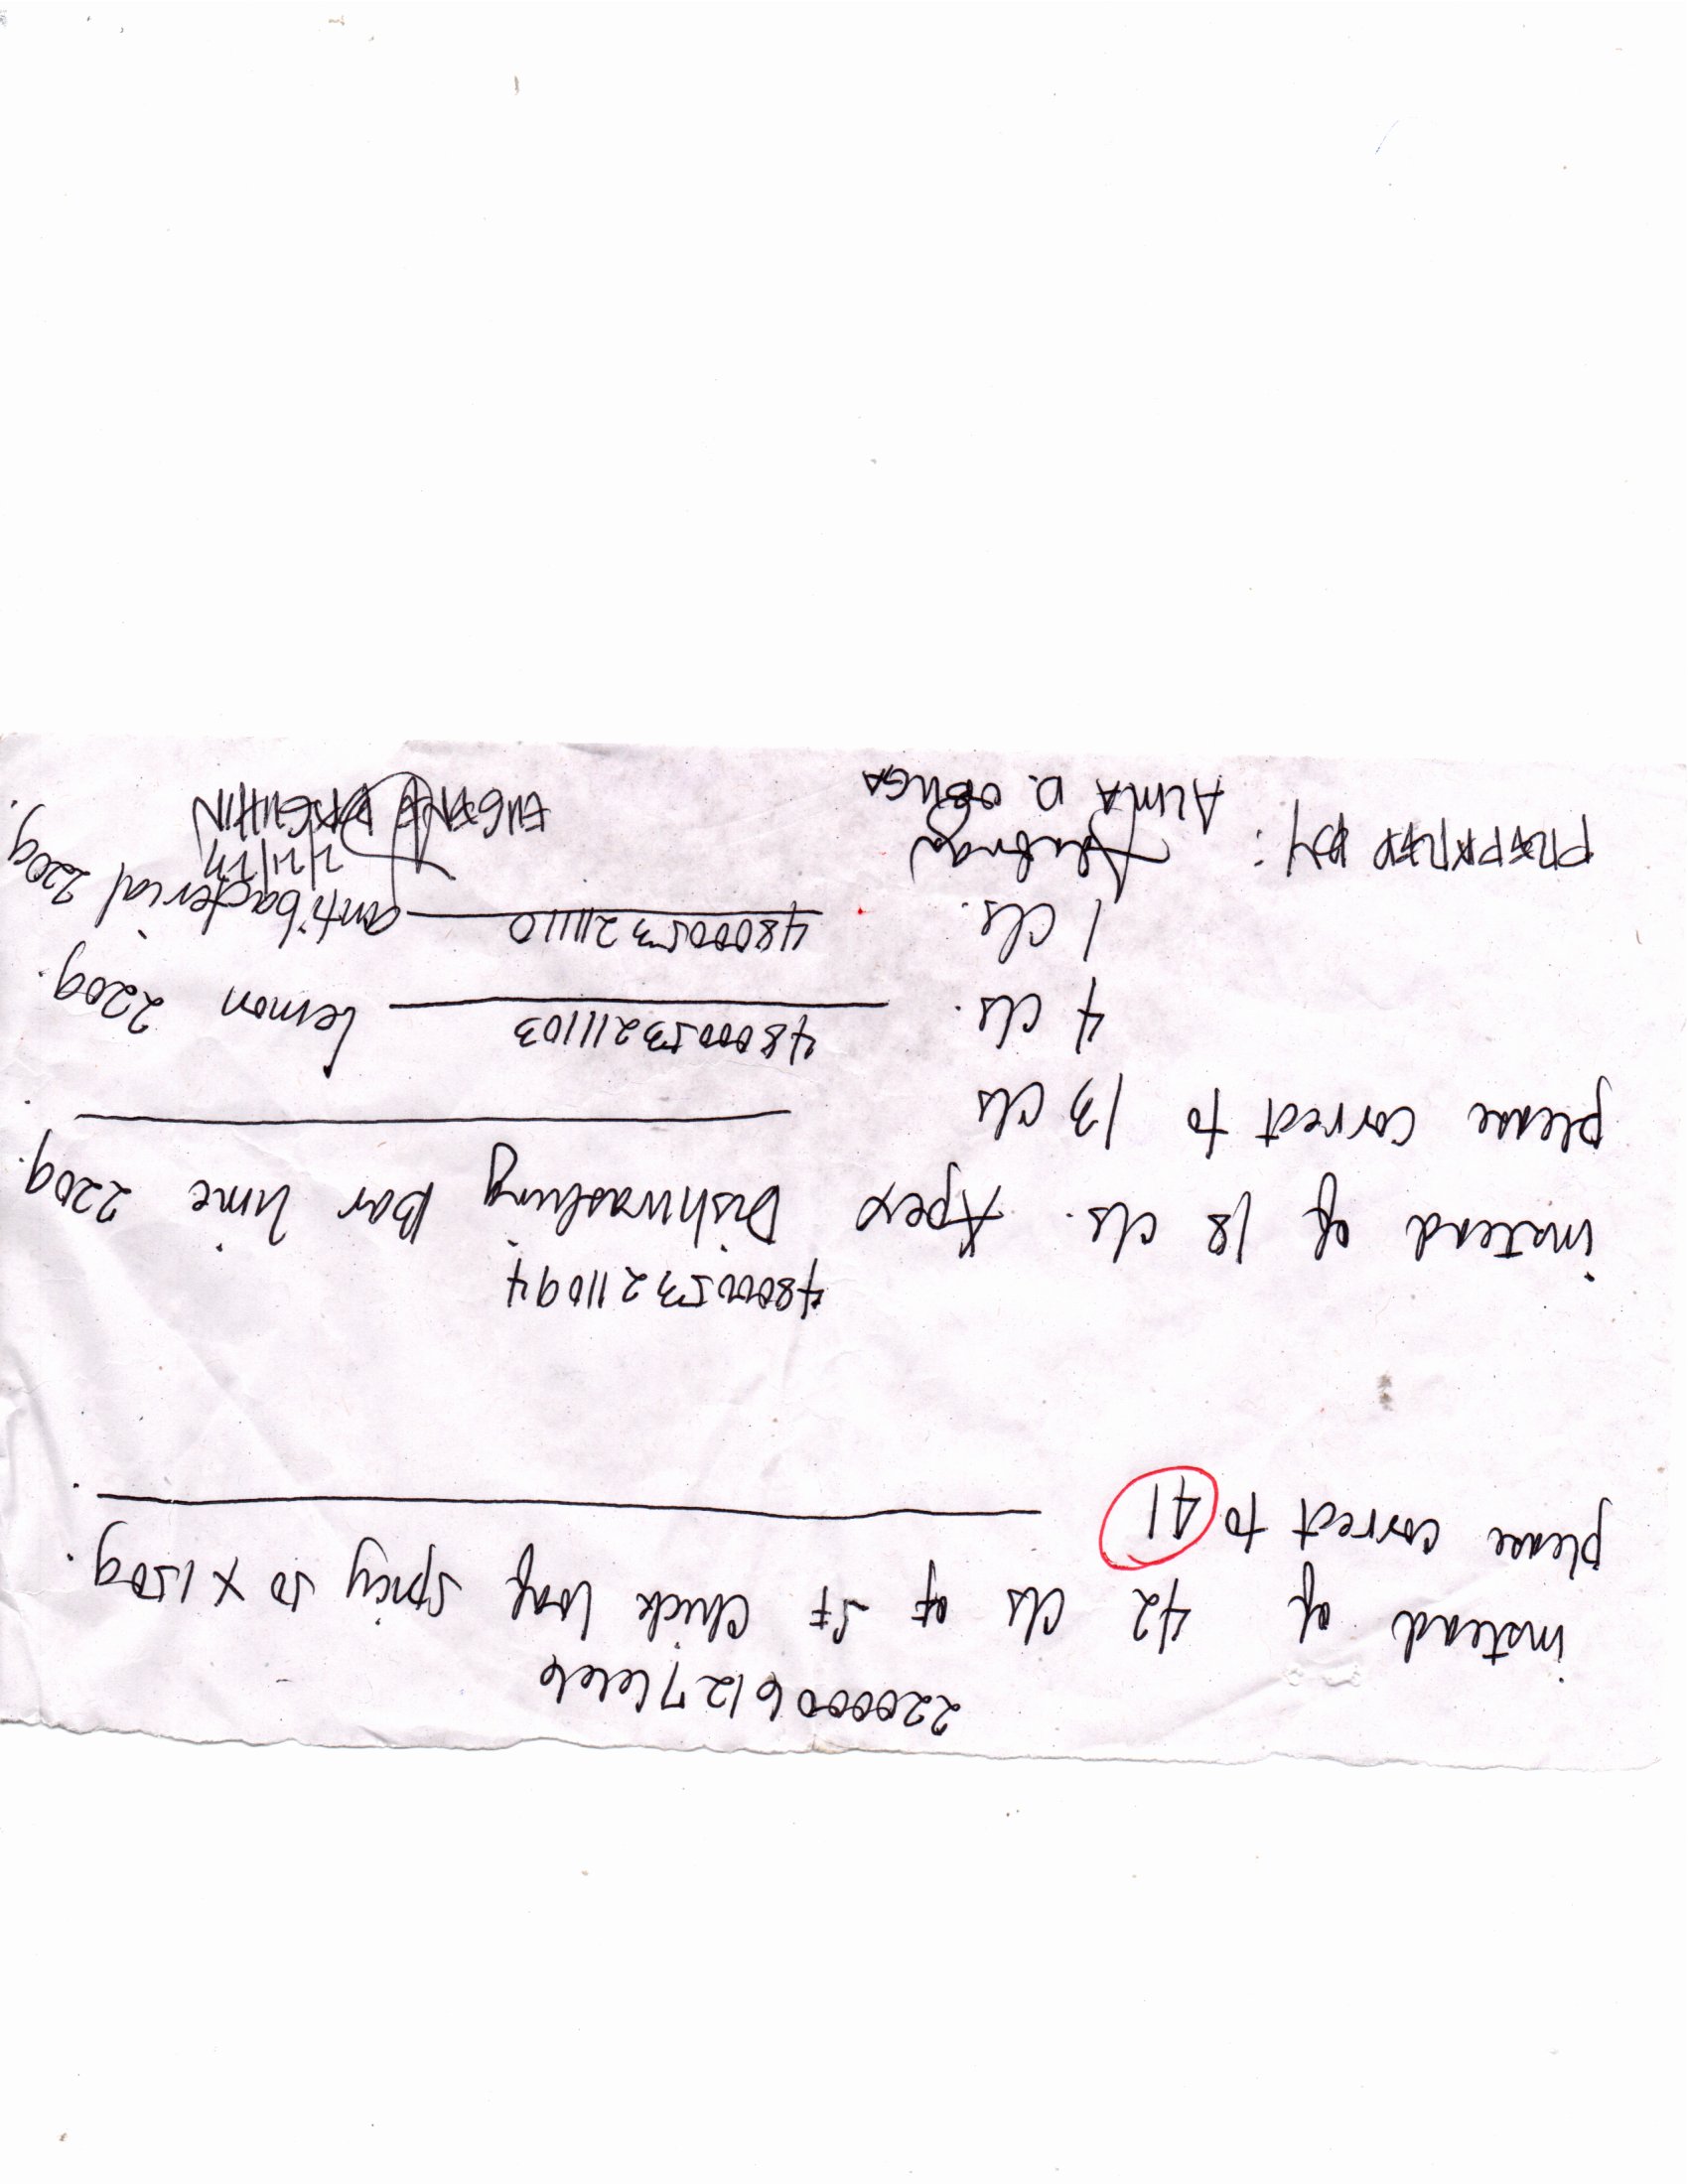 2200006127666
instead of 42 cls of SF Chick Loaf Spicy 50 x 150g.
please correct to 41
4800053211094
instead of 18 cls. Apex Dishwashing Bar Lime 220g.
please correct to 13 cls
4800053211103
4 cls. Lemon 220g.
4800053211110
1 cls. antibacterial 220g.
PREPARED BY:
ALMA D. OBUGA